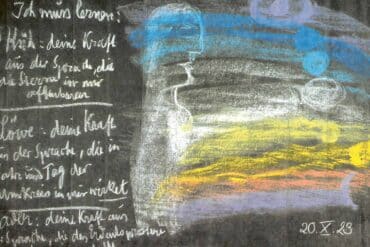 Ich muss lernen:
Kuh: deine Kraft
aus der Sprache, die
die Sterne in mir
offenbaren
Löwe: deine Kraft
in der Sprache, die in
Jahr und Tag der
Umkreis in mir wirket
Adler: deine Kraft aus
Sprache, die
20. X. 23